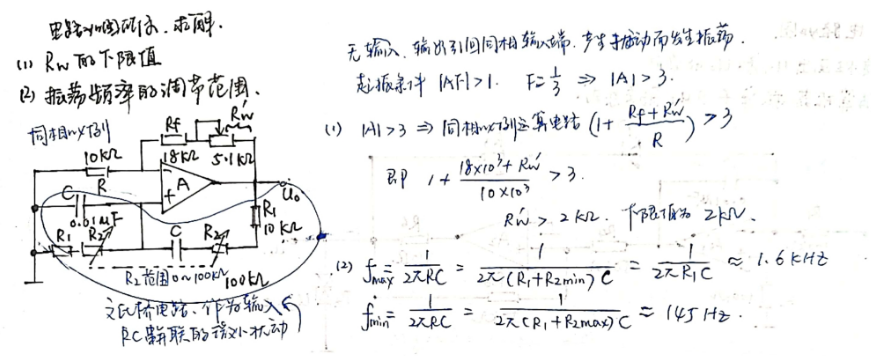 电路如图所示,求解.
(1) Rw 的下限值
(2) 振荡频率的调节范围.
同相比例
Rf
R'w
10kΩ
18kΩ
5.1kΩ
R
A
C
0.01μF
u₀
R₁
10kΩ
R₁
R₂
C
R₂
R₂范围0~100kΩ
100kΩ
文氏桥电路, 作为输入
RC串联的微小扰动
无输入, 输出引回同相输入端, 产生扰动而发生振荡.
起振条件 |AF|>1. F=1/3 ⇒ |A|>3.
(1) |A|>3 ⇒ 同相比例运算电路 (1+ (Rf+R'w)/R) >3
即 1+ (18×10³+R'w)/(10×10³) >3.
R'w > 2kΩ. 下限值为 2kΩ.
(2) fmax = 1/(2πRC) = 1/(2π(R₁+R₂min)C) = 1/(2πR₁C) ≈ 1.6kHz
fmin = 1/(2πRC) = 1/(2π(R₁+R₂max)C) ≈ 145Hz.